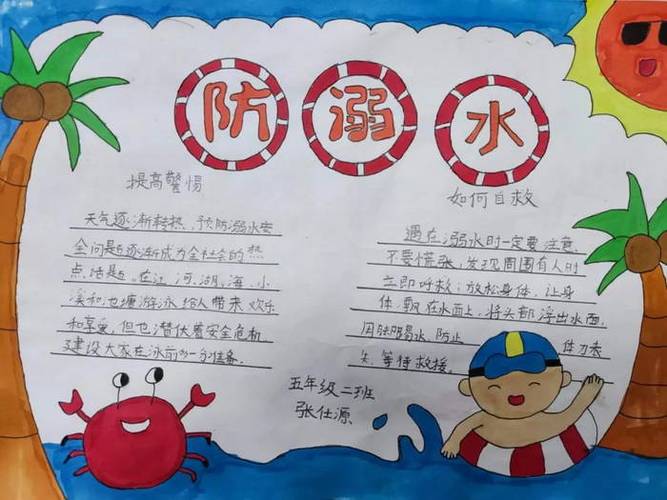 防溺水
提高警惕
天气逐渐转热，预防溺水安
全问题逐渐成为全社会的热
点话题。在江、河、湖、海、小
溪和池塘游泳给人带来欢乐
和享受，但也潜伏着安全危机
建设大家在泳前多一分准备。
如何自救
遇在溺水时一定要注意，
不要慌张，发现周围有人时
立即呼救；放松身体，让身
体飘在水面上，将头部浮出水面，
用脚踢水，防止 体力丧
失，等待救援。
五年级二班
张仕源